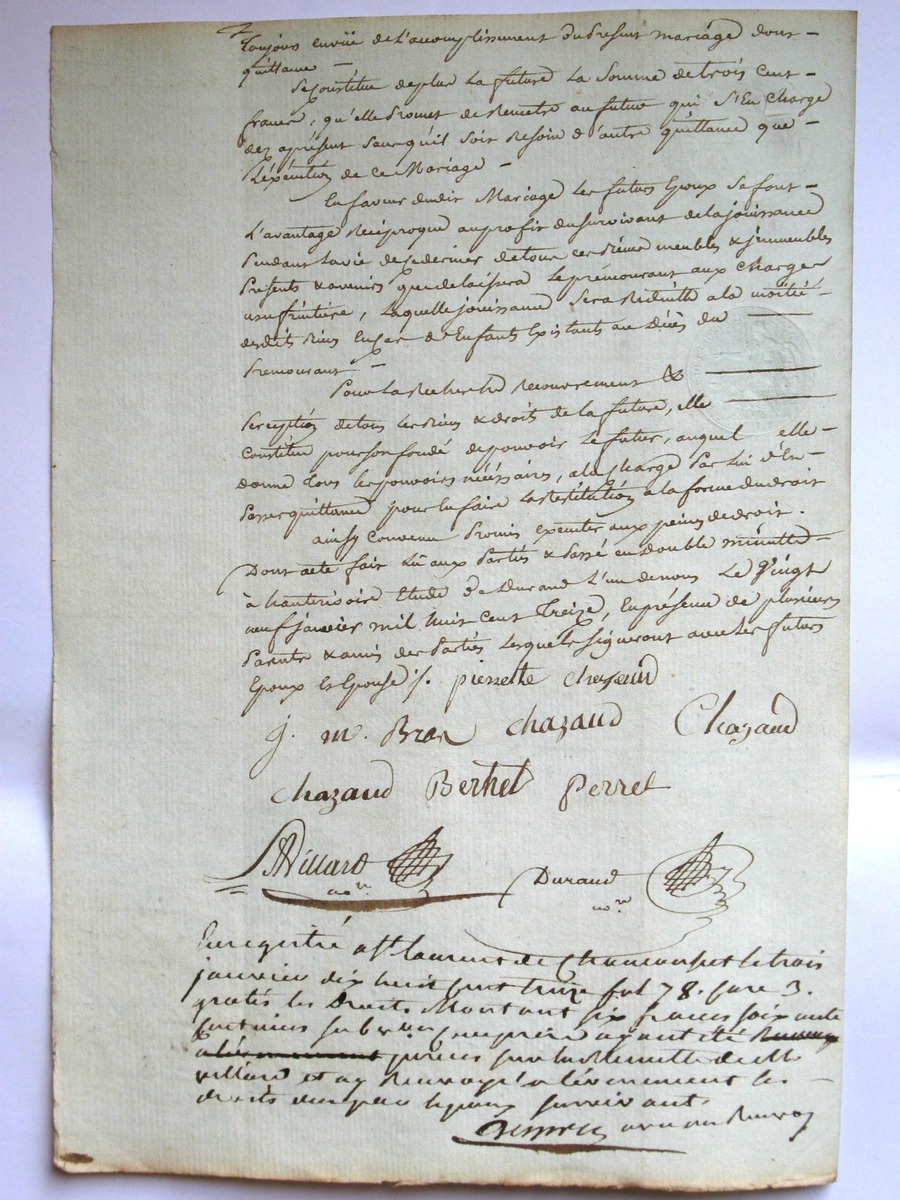 toujours envüe de L'acomplissement du Present mariage dont
quittance
Se Constitue de plus La future La Somme de trois Cent
francs, qu'elle Promet de Remetre au futur qui S'En Charge
dez apresent Sans qu'il Soit Besoin d'autre quittance que
L'éxécution de Ce Mariage
En faveur dudit Mariage Les futurs Epoux Se font
L'avantage Réciproque au profit du Survivant de La jouissance
Pendant La vie de Ce dernier de tous Ces Biens meubles & jmmeubles
Présents & avenirs que delaissera Le prémourant aux Charges
usufruitiere, Laquelle jouissance Sera Réduitte a La moitié
desdits Biens En Cas d'Enfants Existants au Décès du
Premourant
Pour La Recherche Recouvrement &
Perception de tous Les Biens & droits de La future, elle
Constitue pour Son fondé de pouvoir Le futur, auquel elle
donne tous Les pouvoirs nécéssaires, a La Charge Par Lui d'En
Passer quittance pour En faire La Restitution a La forme du droit
ainsy Convenu Promis exécuter aux peines de droit.
Dont acte fait Lû aux Parties & Passé en Double minutte
à hauterivoire Etude de Durand L'un de nous Le Vingt
neuf janvier mil huit Cent Treize, En présence de plusieurs
Parents & amis des Parties Lesquels Signeront avec Les futurs
Epoux Et Epouse /. pierrette chazaud
j. m. Bras chazaud Chazaud
chazaud Berthet perret
Villard Durand
no.re no.re
Enregistré a St. Laurent de Chamousset le trois
dix huit cent treize fol 78. Case 3.
les Droits Montant six francs soixante
centimes ayant été
perçus sur la Minutte de Me
villard et a l'évenement les
droits Epoux survivant